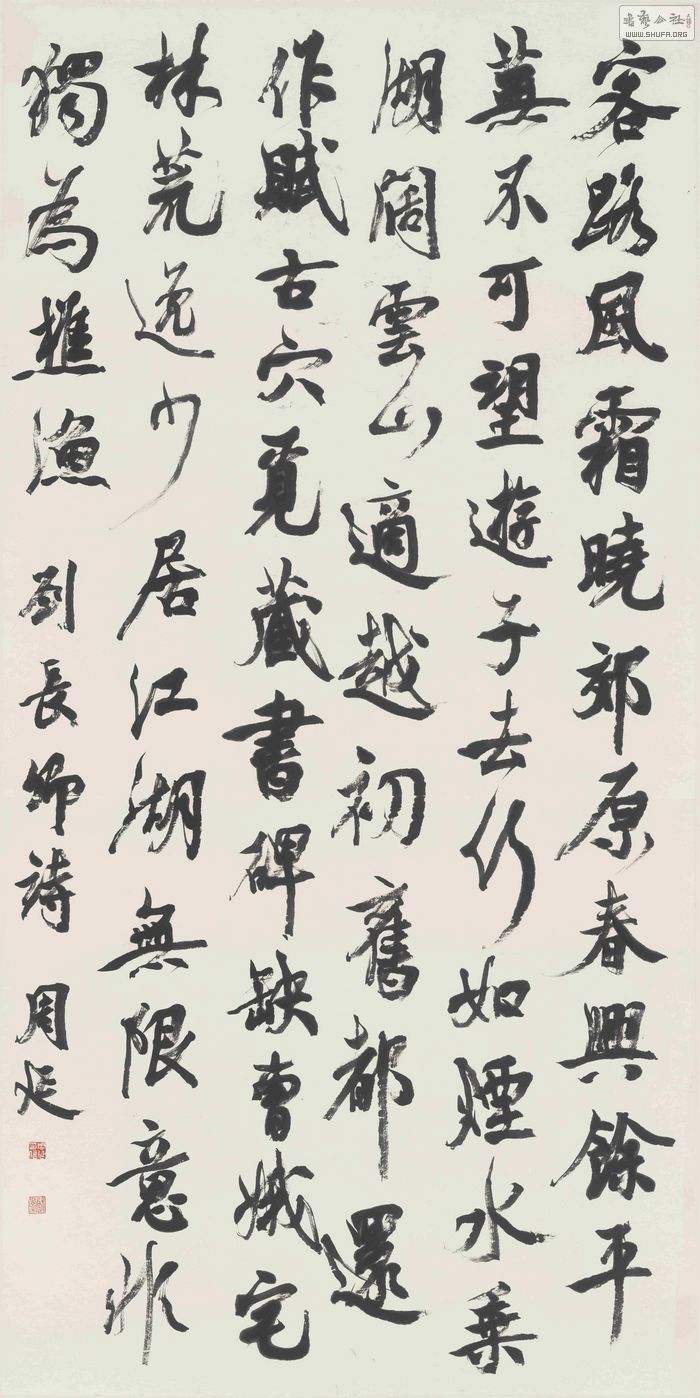 書藝公社
WWW.SHUFA.ORG
客路風霜曉郊原春興餘平
蕪不可望遊子去何如煙水乘
湖闊雲山適越初舊都還
作賦古穴覓藏書碑缺曹娥宅
林荒逸少居江湖無限意非
獨為樵漁 劉長卿詩 周延